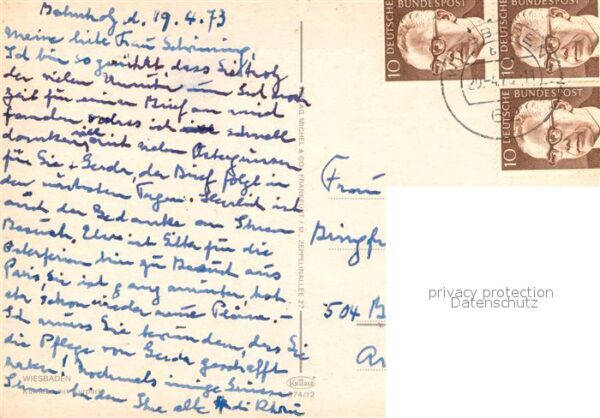 Bahnholz d. 19.4.73
Meine liebe Frau
Ich bin so gerührt dass Sie trotz
der vielen Unruhe um Sie noch
Zeit für einen Brief an mich
fanden, sodass ich schnell
danken will vielen Ostergrüssen
für Sie + Gerda, der Brief folgt in
den nächsten Tagen. Herrlich ist
auch der Gedanke an Ihren
Besuch. Eben ist für die
Osterferien hier zu Besuch aus
Paris, Sie ist ganz munter, hat
schon wieder neue Pläne.
Ich muss Sie bewundern, dass Sie
die Pflege von Gerda geschafft
haben! Nochmals innige Grüsse
Ihnen beiden Ihre alte
WIESBADEN
Krüger
974/12
AG. MICHEL & CO., FRANKFURT / M., ZEPPELINALLEE 27
DEUTSCHE BUNDESPOST
10
DEUTSCHE BUNDESPOST
DEUTSCHE BUNDESPOST
10
Frau
504 B
privacy protection
Datenschutz